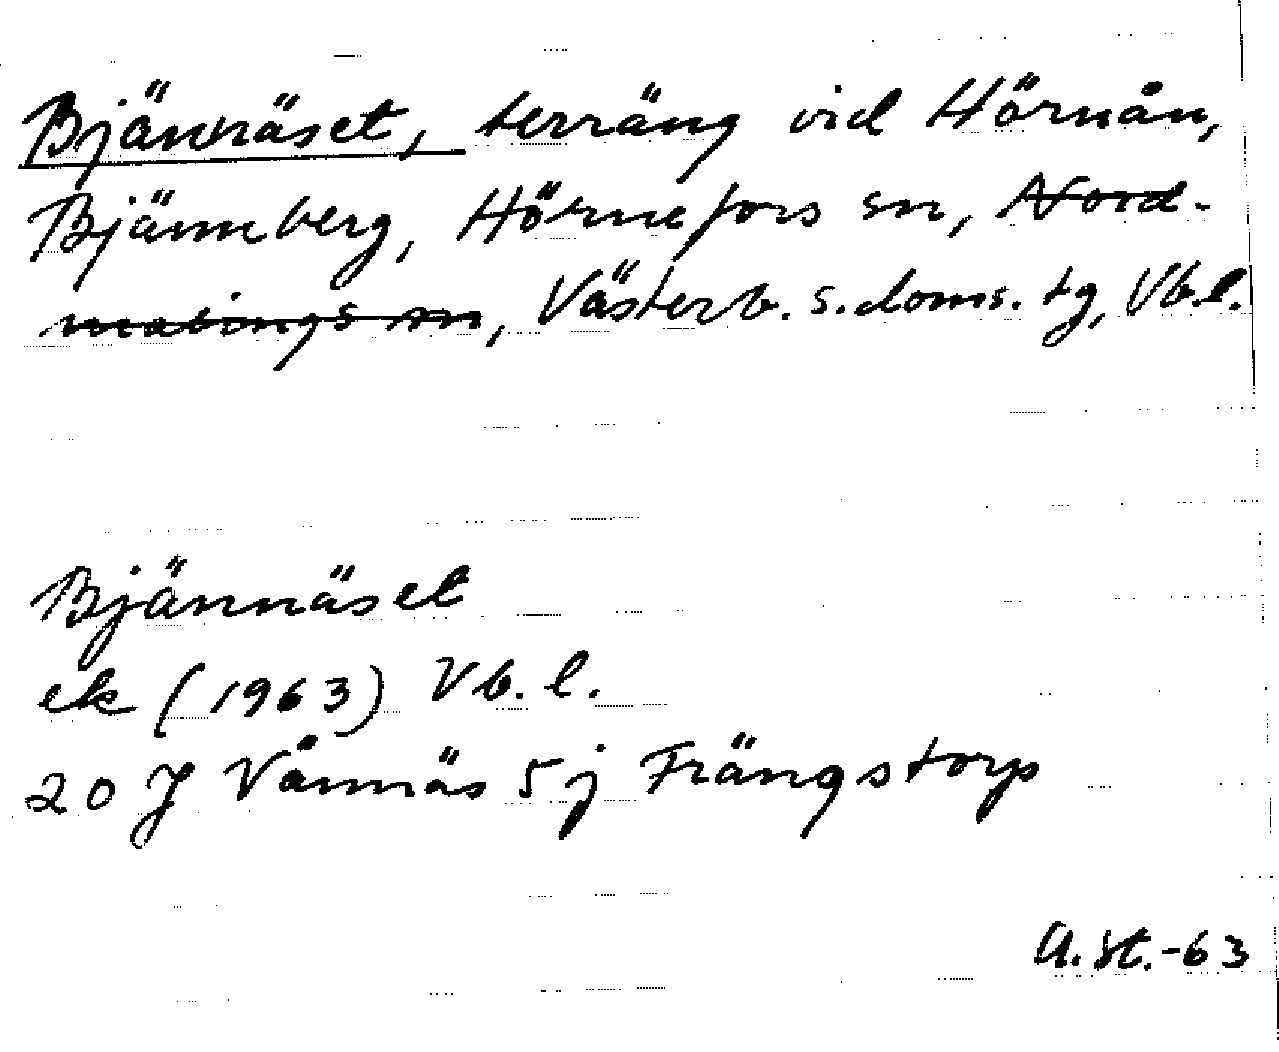 Bjännäset, terräng vid Hörnån,
Bjänneberg, Hörnefors sn, Nord-
malings sn, Västerb. s. doms. tg, Vb.l.
Bjännäset
ek (1963) Vb. l.
20 J Vännäs 5 j Frängstorp
A. St. -63